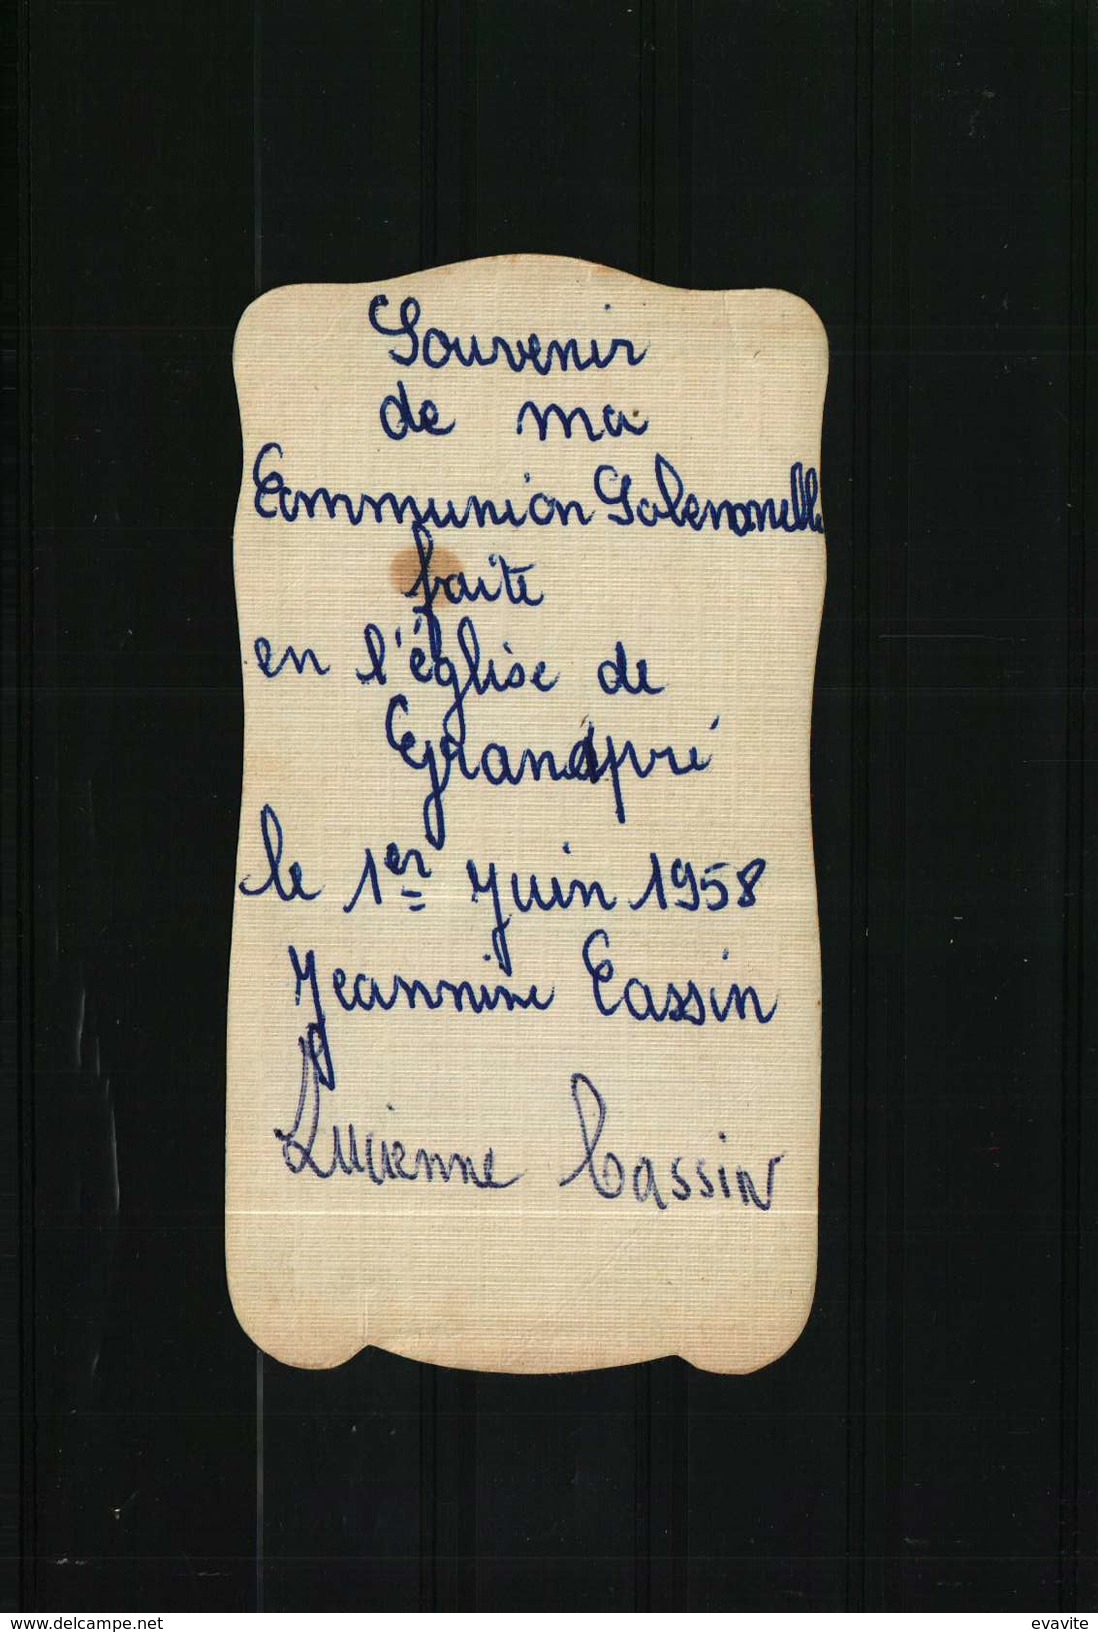 Souvenir
de ma
Communion Solennelle
faite
en l'église de
Grandpré
le 1er Juin 1958
Jeannine Cassin
Lucienne Cassin
https://www.delcampe.net
evavite